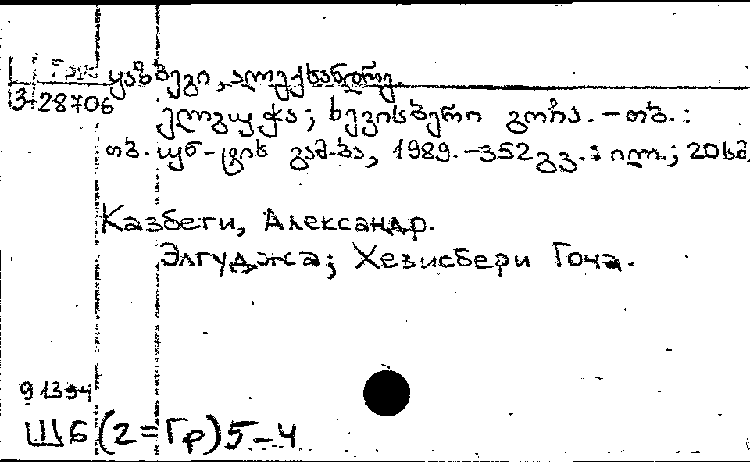 ყაზბეგი, ალექსანდრე.
3-28706
ელგუჯა; ხევისბერი გოჩა. - თბ. :
თბ. უნ-ტის გამ-ბა, 1989. - 352 გვ. : ილ.; 20 სმ.
Казбеги, Александр.
Элгуджа; Хевисбери Гоча.
91394
Ш6(2=Гр)5-4